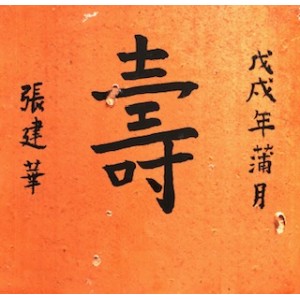 戊戌年蒲月
壽
張建華